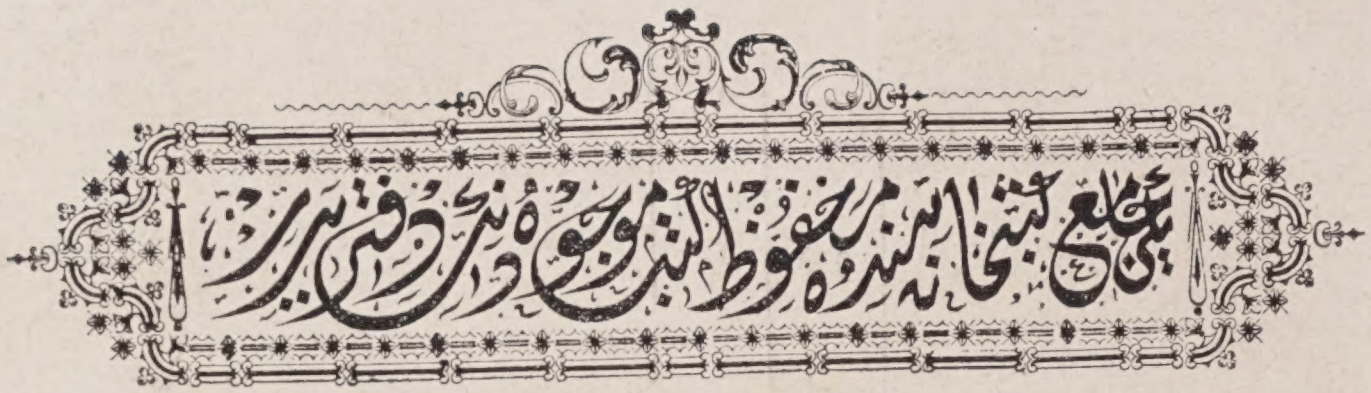 یکی جامع کتبخانه‌سنده محفوظ کتب موجوده‌نک دفتریدر